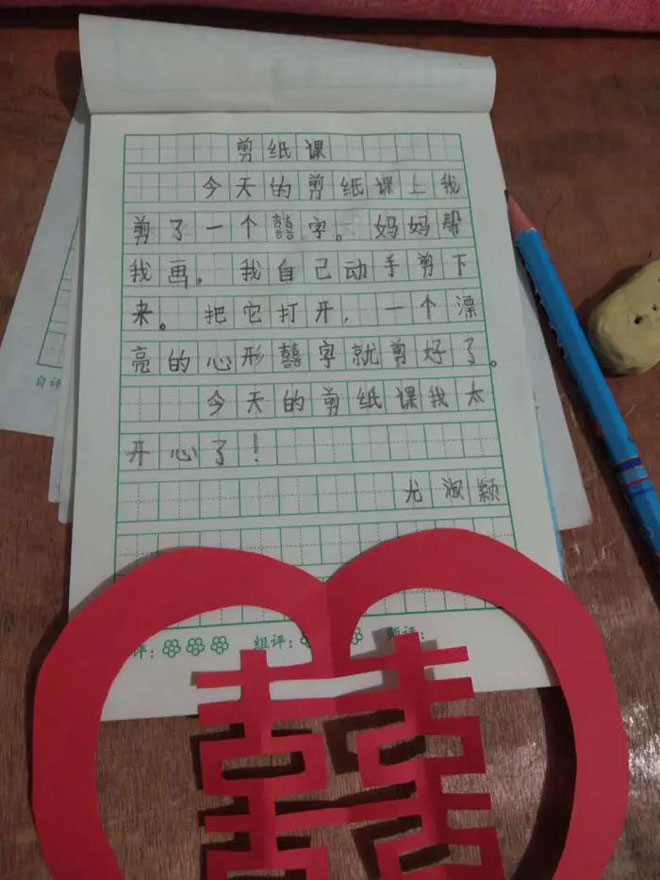 剪纸课
今天的剪纸课上我
剪了一个囍字。妈妈帮
我画，我自己动手剪下
来。把它打开，一个漂
亮的心形囍字就剪好了。
今天的剪纸课我太
开心了！
尤淑颖
自评
评：
组评：
师评：
囍